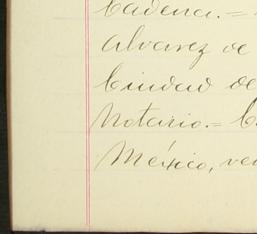 Cadena.=
Alvarez de
Ciudad de
Notario.=
México,